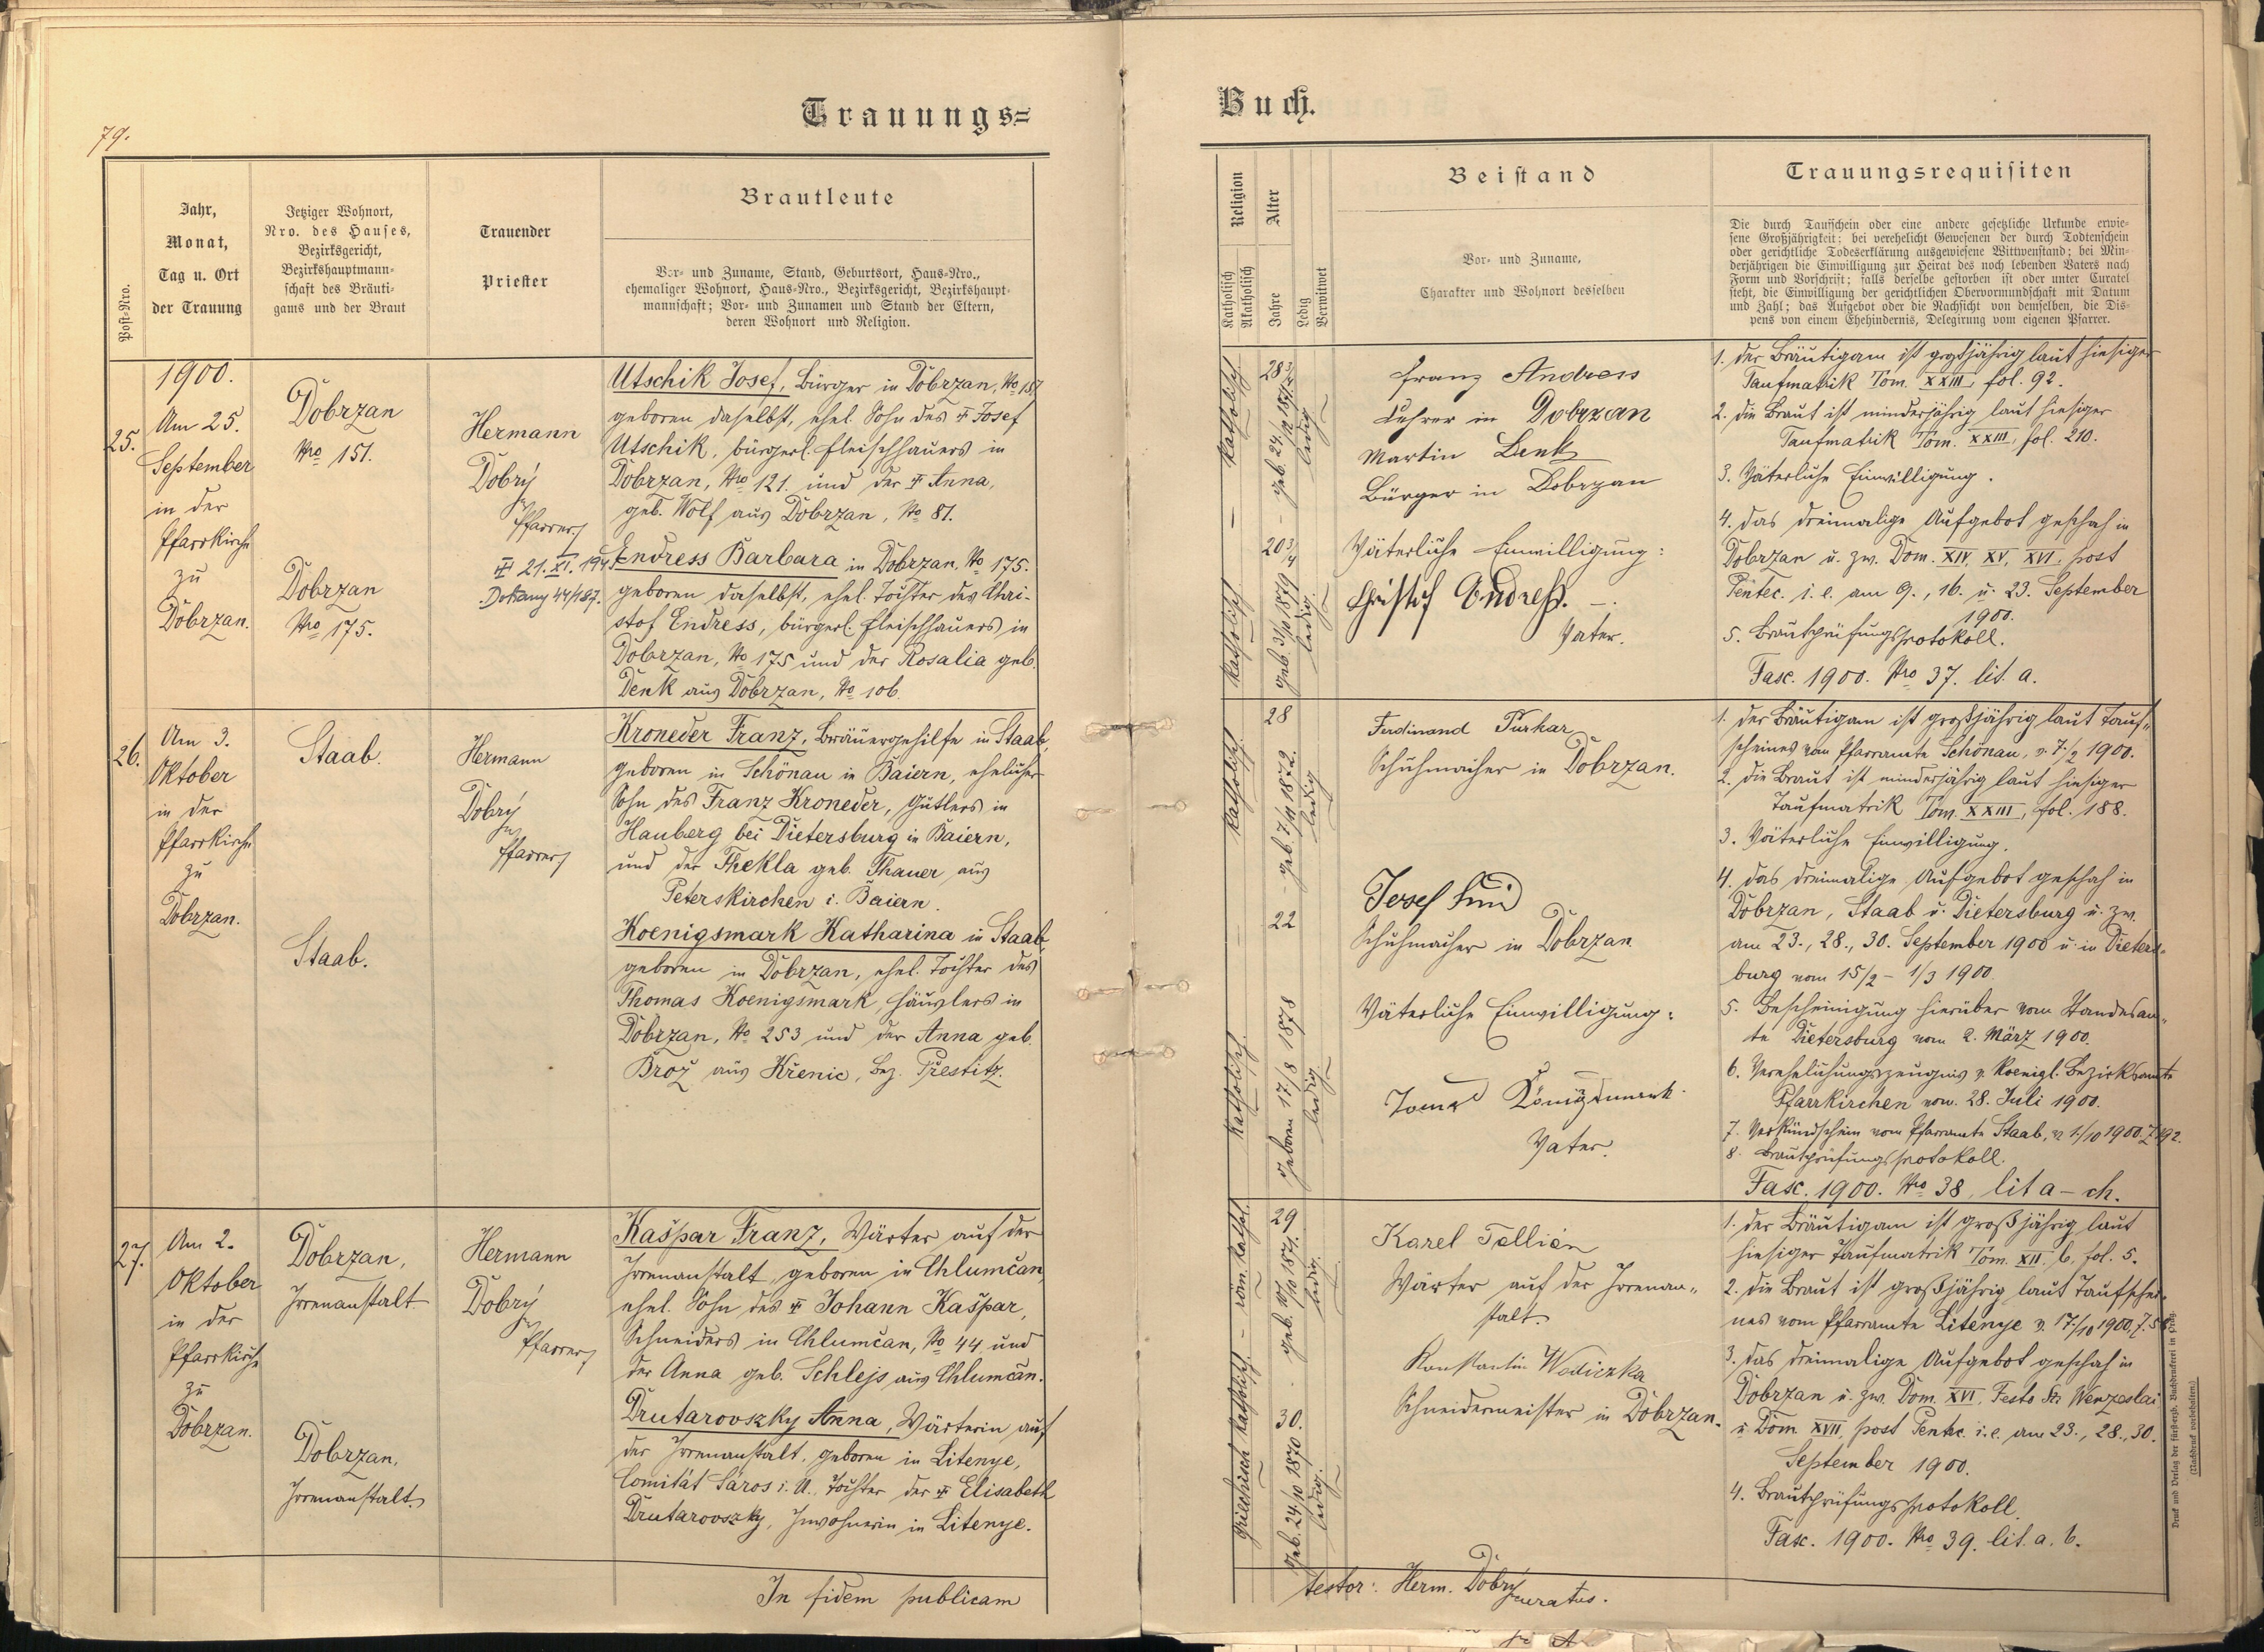 79.
Trauungs=
Post-Nro.
Jahr,
Monat,
Tag u. Ort
der Trauung
Jetziger Wohnort,
Nro. des Hauses,
Bezirksgericht,
Bezirkshauptmann=
schaft des Bräuti=
gams und der Braut
Trauender
Priester
Brautleute
Vor= und Zuname, Stand, Geburtsort, Haus=Nro.,
ehemaliger Wohnort, Haus=Nro., Bezirksgericht, Bezirkshaupt=
mannschaft; Vor= und Zunamen und Stand der Eltern,
deren Wohnort und Religion.
25.
1900.
Am 25.
September
in der
Pfarrkirche
zu
Dobrzan.
Dobrzan
Nro 151.
Dobrzan
Nro 175.
Hermann
Dobrý
Pfarrer
21. XI. 194
Utschik Josef, Bürger in Dobrzan, No 187
geboren daselbst, ehel. Sohn des ☩ Josef
Utschik, bürgerl. Fleischhauers in
Dobrzan, Nro 121. und der ☩ Anna,
geb. Wolf aus Dobrzan, No 81.
Endress Barbara in Dobrzan, No 175.
geboren daselbst, ehel. Tochter des Chri-
stof Endress, bürgerl. Fleischhauers in
Dobrzan, No 175 und der Rosalia geb.
Denk aus Dobrzan, No 106.
26.
Am 3.
Oktober
in der
Pfarrkirche
zu
Dobrzan.
Staab.
Staab.
Hermann
Dobrý
Pfarrer
Kroneder Franz, Bräuergehilfe in Staab,
geboren in Schönau in Baiern, ehelicher
Sohn des Franz Kroneder, Gütlers in
Hauberg bei Dietersburg in Baiern,
und der Thekla geb. Thauer aus
Peterskirchen i. Baiern.
Koenigsmark Katharina in Staab,
geboren in Dobrzan, ehel. Tochter des
Thomas Koenigsmark, Häuslers in
Dobrzan, No 253 und der Anna geb.
Brož aus Křenic, Bez. Přestitz.
27.
Am 2.
Oktober
in der
Pfarrkirche
zu
Dobrzan.
Dobrzan,
Irrenanstalt
Dobrzan,
Irrenanstalt
Hermann
Dobrý
Pfarrer
Kašpar Franz, Wärter auf der
Irrenanstalt, geboren in Chlumčan,
ehel. Sohn des ☩ Johann Kašpar,
Schneiders in Chlumčan, No 44 und
der Anna geb. Schlejs aus Chlumčan.
Drutarovszky Anna, Wärterin auf
der Irrenanstalt, geboren in Litenye,
Comität Sáros i. U., Tochter der ☩ Elisabeth
Drutarovszky, Inwohnerin in Litenye.
In fidem publicam
Buch.
Religion
Katholisch
Akatholisch
Alter
Jahre
Ledig
Verwitwet
Beistand
Vor= und Zuname,
Charakter und Wohnort desselben
Trauungsrequisiten
Die durch Taufschein oder eine andere gesetzliche Urkunde erwie=
sene Großjährigkeit; bei verehelicht Gewesenen der durch Todtenschein
oder gerichtliche Todeserklärung ausgewiesene Wittwenstand; bei Min=
derjährigen die Einwilligung zur Heirat des noch lebenden Vaters nach
Form und Vorschrift; falls derselbe gestorben ist oder unter Curatel
steht, die Einwilligung der gerichtlichen Obervormundschaft mit Datum
und Zahl; das Aufgebot oder die Nachsicht von demselben, die Dis=
pens von einem Ehehindernis, Delegirung vom eigenen Pfarrer.
katholisch
katholisch
ledig
geb. 31/10 1879
ledig
Franz Andress
Lehrer in Dobrzan
Martin Denk
Bürger in Dobrzan
Väterliche Einwilligung:
Christof Endreß.
Vater.
1. der Bräutigam ist großjährig laut hiesiger
Taufmatrik Tom. XXIII, fol. 92.
2. die Braut ist minderjährig laut hiesiger
Taufmatrik Tom. XXIII, fol. 210.
3. Väterliche Einwilligung.
4. das dreimalige Aufgebot geschah in
Dobrzan u. zw. Dom. XIV, XV, XVI. post
Pentec. i. e. am 9., 16. u. 23. September
1900.
5. Brautprüfungsprotokoll.
Fasc. 1900. Nro 37. lit. a.
katholisch
28
geb. 7/11 1872.
ledig
katholisch
22
geboren 17/8 1878
ledig
Ferdinand Purkar
Schuhmacher in Dobrzan.
Schuhmacher in Dobrzan
Väterliche Einwilligung:
Tomas Königsmark.
Vater.
1. der Bräutigam ist großjährig laut Tauf=
scheines vom Pfarramte Schönau, v. 7./2 1900.
2. die Braut ist minderjährig laut hiesiger
Taufmatrik Tom. XXIII, fol. 188.
3. Väterliche Einwilligung.
4. das dreimalige Aufgebot geschah in
Dobrzan, Staab u. Dietersburg u. zw.
am 23., 28., 30. September 1900 u. in Dieters=
burg vom 15/2 - 1/3 1900.
5. Bescheinigung hierüber vom Standesam=
te Dietersburg vom 2. März 1900.
6. Verehelichungszeugnis v. koenigl. Bezirksamte
Pfarrkirchen vom 28. Juli 1900.
7. Verkündschein vom Pfarramte Staab, v. 1/10 1900. Z. 192.
8. Brautprüfungsprotokoll.
Fasc. 1900. Nro 38, lit a - ch.
röm. kathol.
29
geb. 10/10 1871.
ledig.
griechisch katholisch
30.
geb. 24/10 1870.
ledig.
Karel Tellién
Wärter auf der Irrenan=
stalt.
Konstantin Wodiczka
Schneidermeister in Dobrzan.
1. der Bräutigam ist großjährig laut
hiesiger Taufmatrik Tom. XII. b, fol. 5.
2. die Braut ist großjährig laut Taufschei=
nes vom Pfarramte Litenye v. 17/10 1900, Z. 58.
3. das dreimalige Aufgebot geschah in
Dobrzan u. zw. Dom. XVI, Festo Sti Wenzeslai
u. Dom. XVII, post Pentec. i. e. am 23., 28., 30.
September 1900.
4. Brautprüfungsprotokoll.
Fasc. 1900. Nro 39. lit. a. b.
testor: Herm. Dobrý
curatus.
Druck und Verlag der fürsterzb. Buchdruckerei in Prag.
(Nachdruck vorbehalten.)